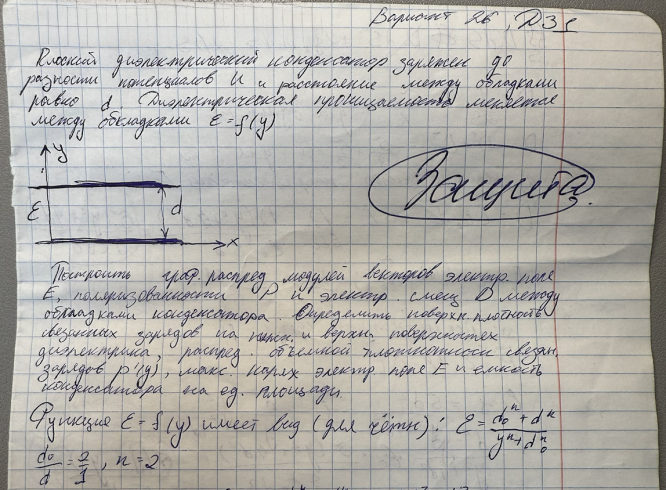 Вариант 26, ДЗ 1
Плоский диэлектрический конденсатор заряжен до
разности потенциалов U и расстояние между обкладками
равно d Диэлектрическая проницаемость меняется
между обкладками ε = f(y)
y
Защита
ε
d
x
Построить граф. распред модулей векторов электр. поле
E, поляризованности P и электр. смещ D между
обкладками конденсатора. Определить поверхн. плотность
связанных зарядов на нижн. и верхн поверхностях
диэлектрика, распред. объемной плотности связан.
зарядов ρ'(y), макс. напряж электр. поле E и емкость
конденсатора на ед. площади.
Функция ε = f(y) имеет вид (для чётн): ε = (d₀ⁿ + dⁿ)/(yⁿ + d₀ⁿ)
d₀/d = 2/1, n = 2